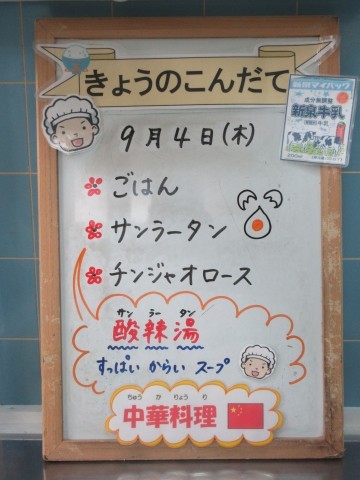 きょうのこんだて
9月4日(木)
ごはん
サンラータン
チンジャオロース
サン ラー タン
酸辣湯
すっぱい からい スープ
ちゅう か りょう り
中華料理
マイパック
成分無調整
牛乳